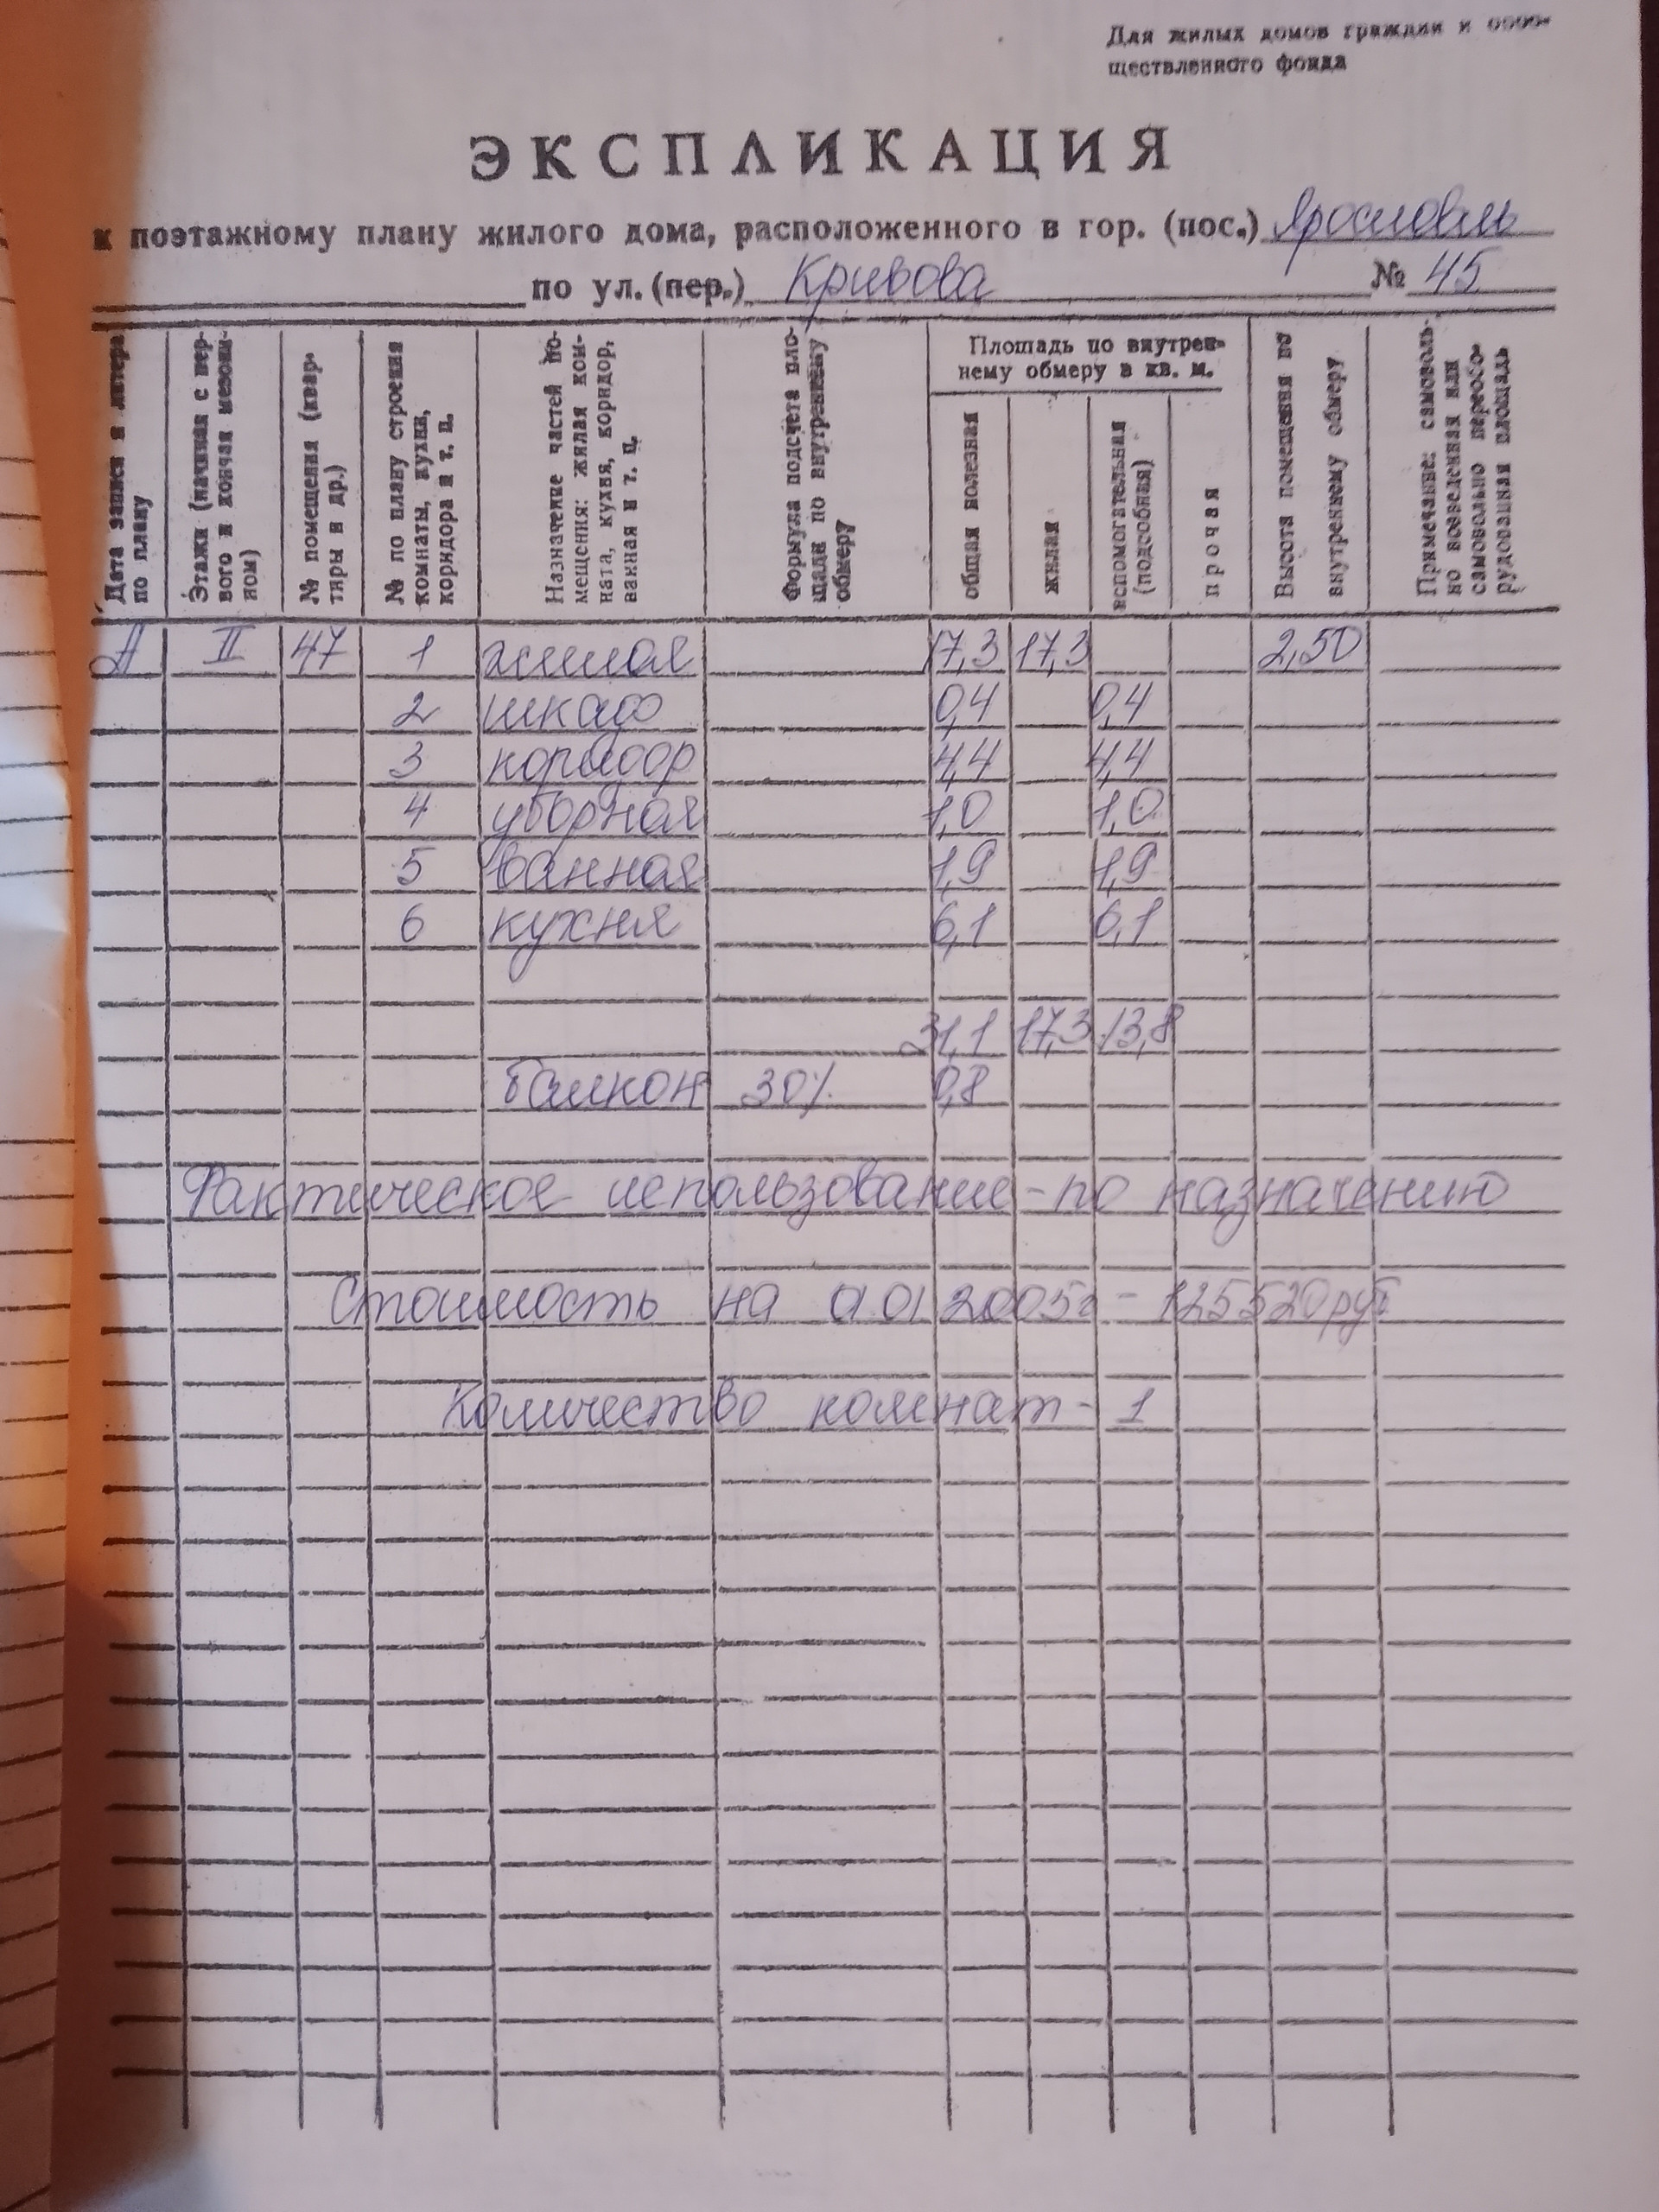 Для жилых домов граждан и обоб-
ществленного фонда
ЭКСПЛИКАЦИЯ
к поэтажному плану жилого дома, расположенного в гор. (пос.) Ярославль
по ул. (пер.) Кривова № 45
Дата записи и литера
по плану
Этажи (начиная с пер-
вого и кончая мезони-
ном)
№ помещения (квар-
тиры и др.)
№ по плану строения
комнаты, кухни,
коридора и т. п.
Назначение частей по-
мещения: жилая ком-
ната, кухня, коридор,
ванная и т. п.
Формула подсчета пло-
щади по внутреннему
обмеру
Площадь по внутрен-
нему обмеру в кв. м.
общая полезная
жилая
вспомогательная
(подсобная)
прочая
Высота помещения по
внутреннему обмеру
Примечание: самоволь-
но возведенная или
самовольно переобо-
рудованная площадь
А II 47 1 жилая 17,3 17,3 2,50
2 шкаф 0,4 0,4
3 коридор 4,4 4,4
4 уборная 1,0 1,0
5 ванная 1,9 1,9
6 кухня 6,1 6,1
31,1 17,3 13,8
балкон 30% 0,8
Фактическое использование - по назначению
Стоимость на 01 01 2005г - 125520 руб
Количество комнат - 1